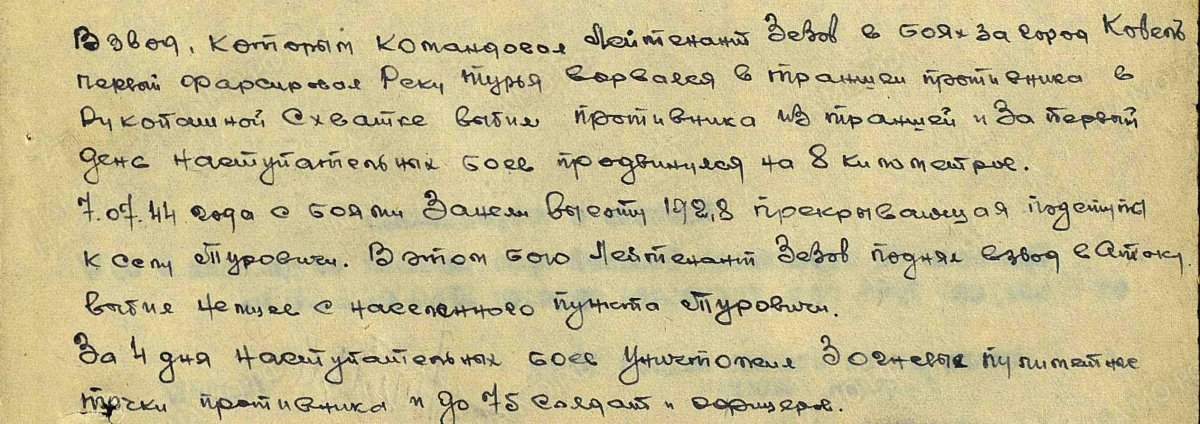 Взвод, которым командовал Лейтенант Зезов в боях за город Ковель
первый фарсировал Реку Турья ворвался в траншеи противника в
Рукопашной Схватке выбил противника из траншей и За первый
день наступательных боев продвинулся на 8 километров.
7.07.44 года с боями Занели высоту 192,8 прекрывающая подступы
к селу Туровичи. В этом бою Лейтенант Зезов поднял взвод в Атаку.
выбил немцев с населенного пункта Туровичи.
За 4 дня наступательных боев Уничтожил 3 огневых пулиметные
точки противника и до 75 солдат и офицеров.